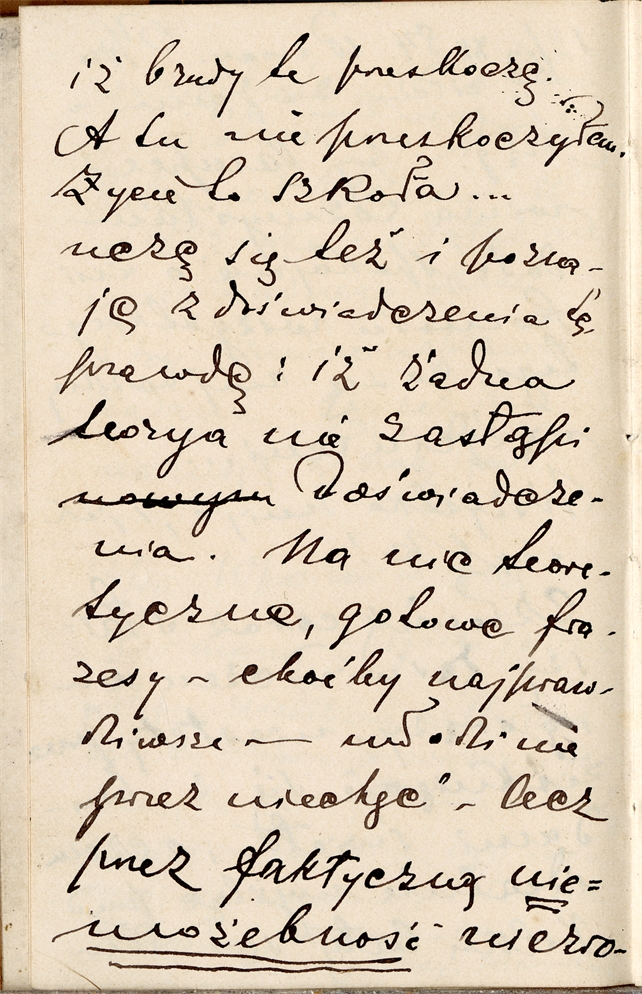 iż brudy te przeskoczę.
A tu nie przeskoczyłam.
Życie to szkoła...
uczę się też i pozna-
ję z doświadczenia tę
prawdę: iż żadna
teorya nie zastąpi
nowym Doświadcze-
nia. Na nic teore-
tyczne, gotowe fra-
zesy – choćby najpraw-
dziwsze — młodzi nie
przez niechęć – lecz
przez faktyczną nie=
możebność niezro-